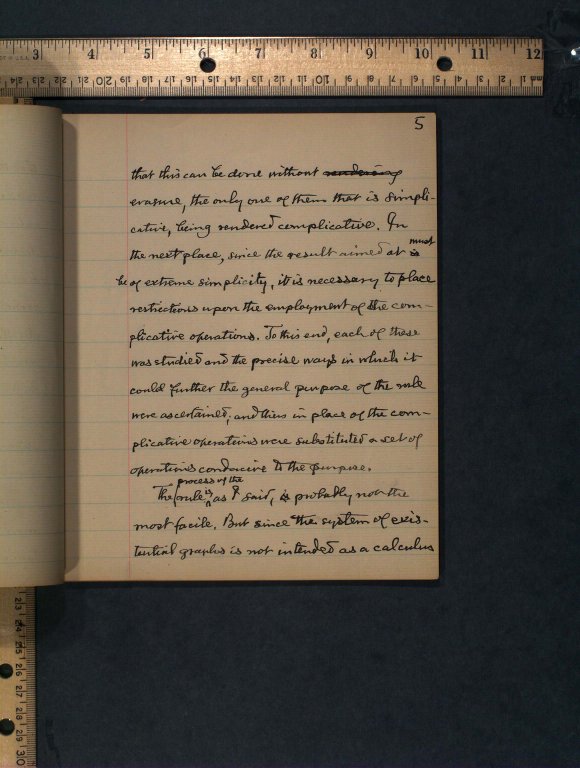 5
that this can be done without rendering
erasure, the only one of them that is simpli-
cative, being rendered complicative. In
the next place, since the result aimed at is must
be of extreme simplicity, it is necessary to place
restrictions upon the employment of the com-
plicative operations. To this end, each of these
was studied and the precise ways in which it
could further the general purpose of the rule
were ascertained, and thus in place of the com-
plicative operations were substituted a set of
operations conducive to the purpose.
process of the
The rule is, as I said, is probably not the
most facile. But since the system of exis-
tential graphs is not intended as a calculus